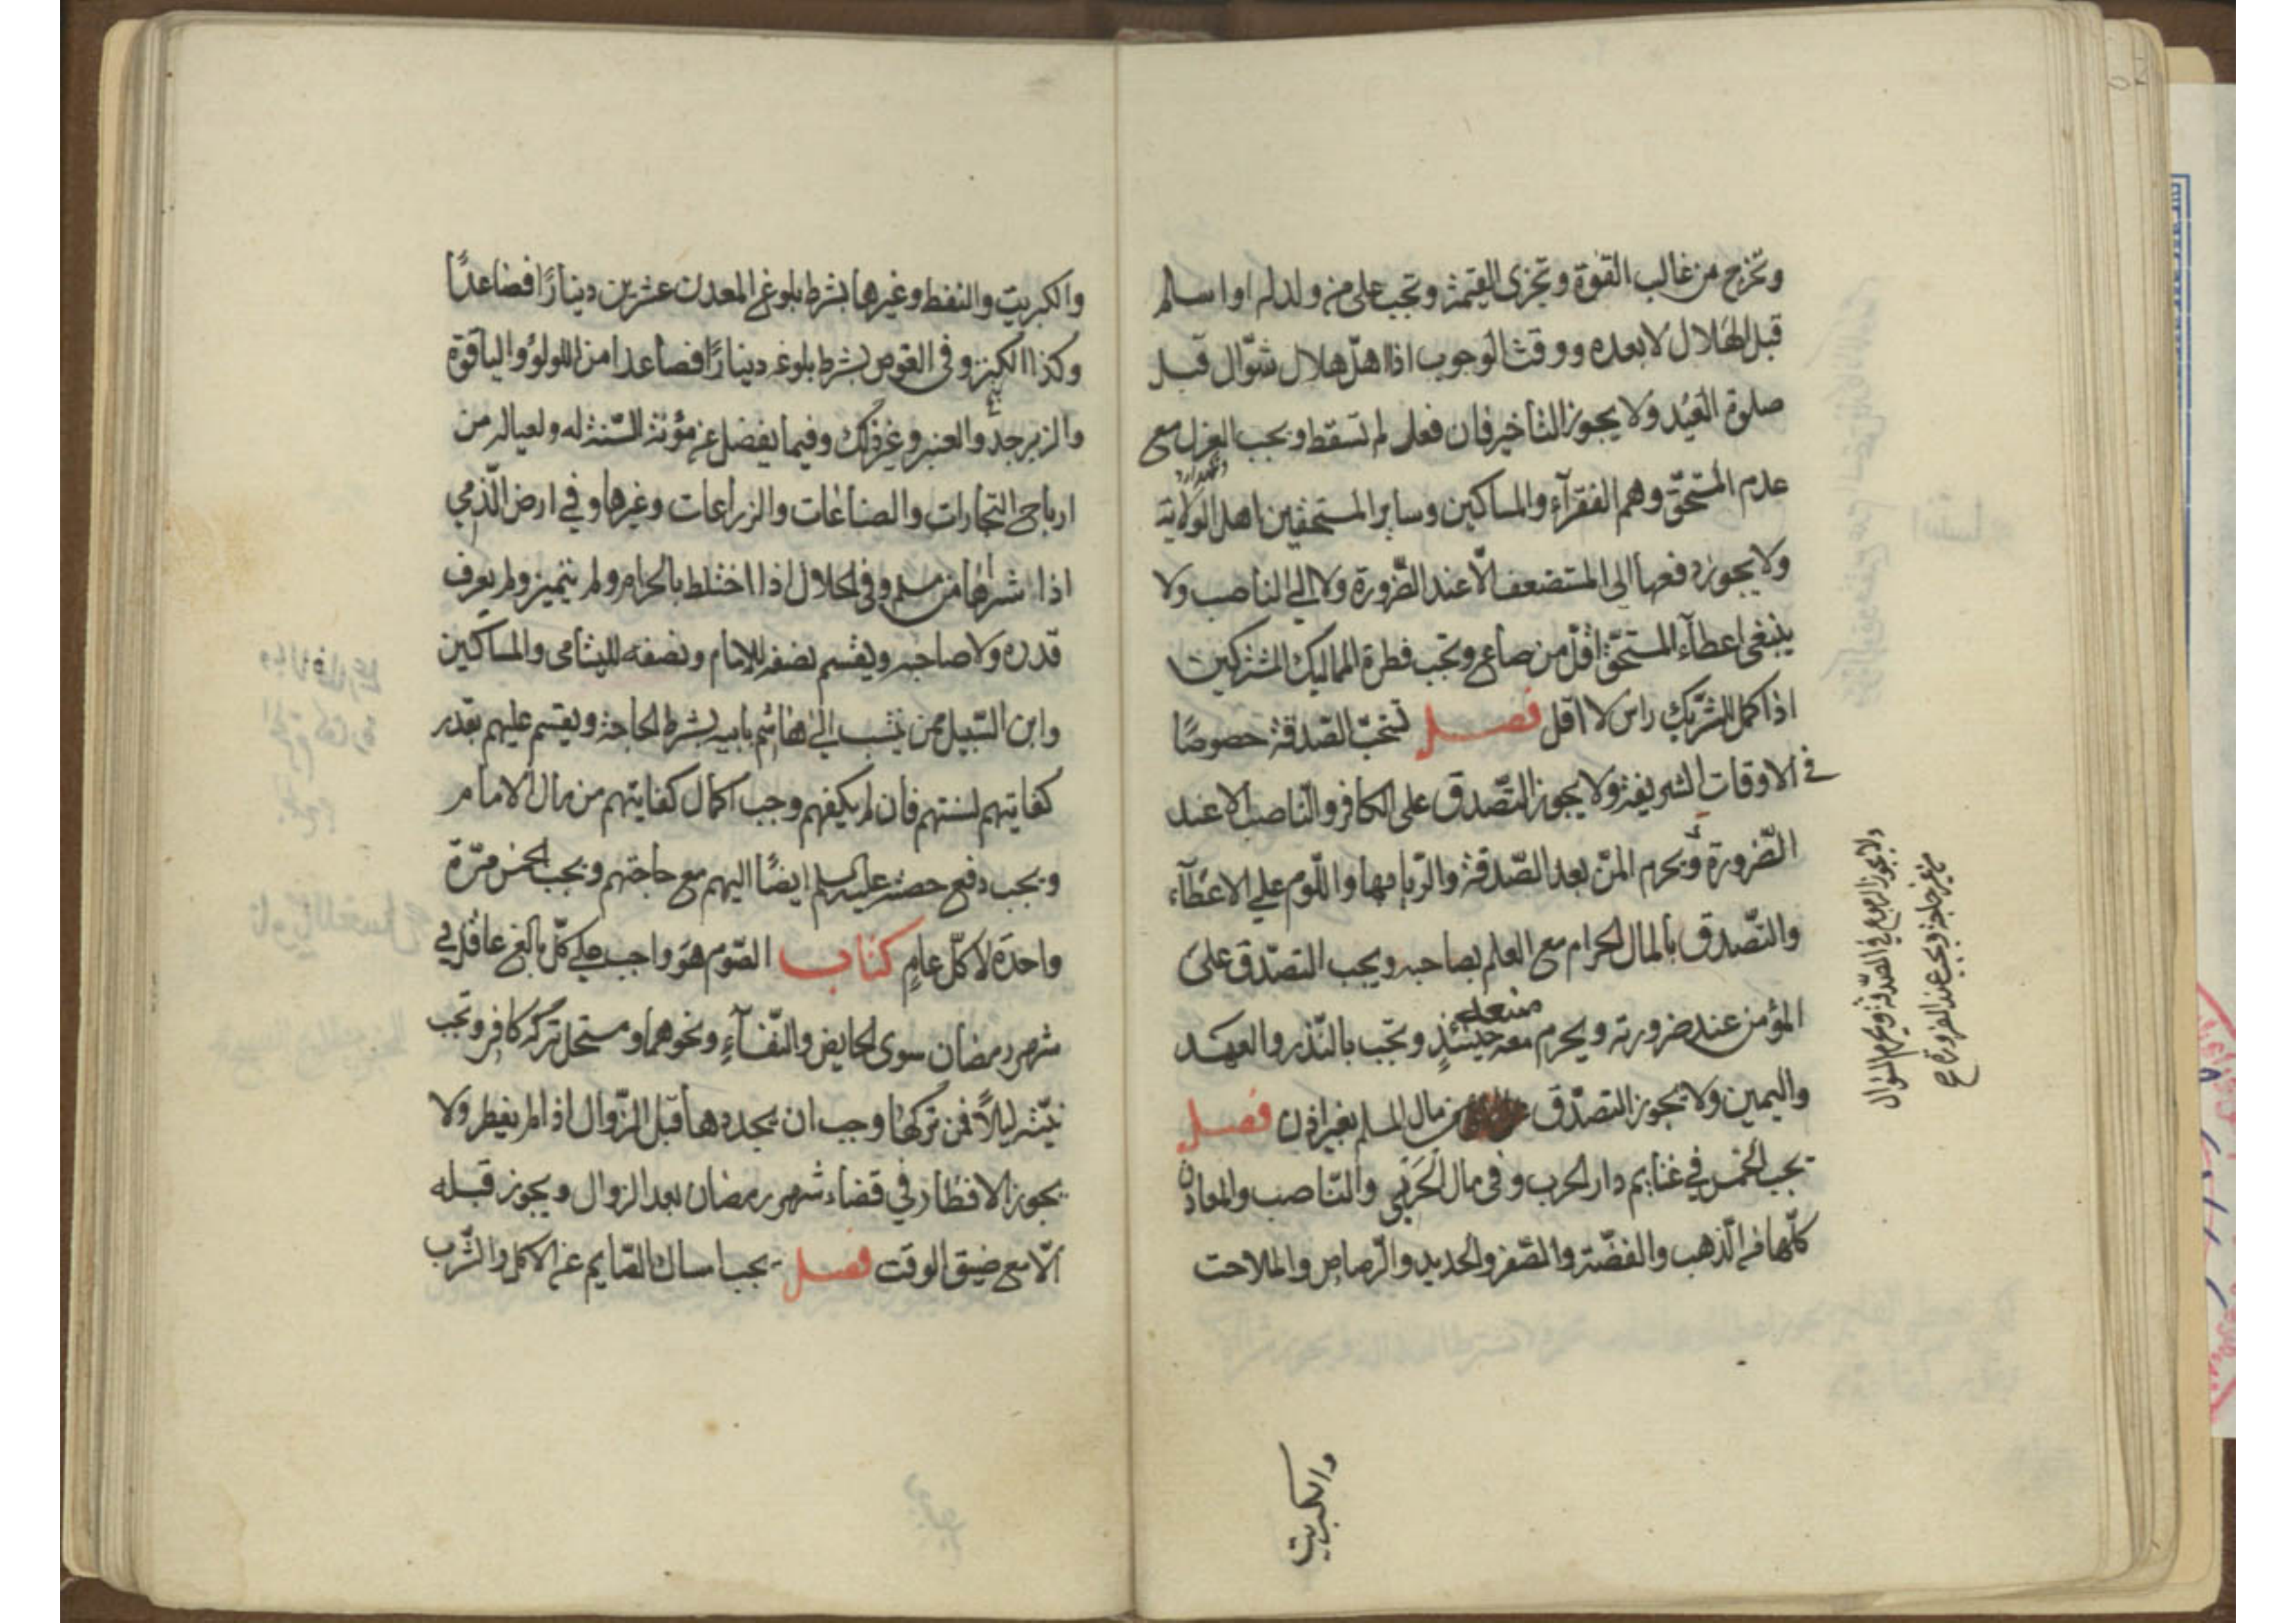 وتخرج من غالب القوة وتجزى القيمة وتجب على من ولد له او اسلم
قبل الهلال لا بعده ووقت الوجوب اذا هلّ هلال شوّال قبل
صلوة العيد ولا يجوز التأخير فان فعل لم تسقط ويجب العزل مع
عدم المستحقّ وهم الفقرآء والمساكين وساير المستحقين اهل الولاية
ولا يجوز دفعها الى المستضعف الّا عند الضّرورة ولا الى الناصب ولا
ينبغى اعطآء المستحقّ اقلّ من صاع وتجب فطرة المماليك المشتركين
اذا كمل لكل شريك راس لا اقل فصل تستحبّ الصّدقة خصوصًا
فى الاوقات الشريفة ولا يجوز التّصدق على الكافر والنّاصب الا عند
الضّرورة ويحرم المنّ بعد الصّدقة والرّيا بها واللّوم على الاعطآء
والتّصدق بالمال الحرام مع العلم بصاحبه ويجب التصدّق على
المؤمن عند ضرورته ويحرم منعه حينئذٍ وتجب بالنّذر والعهد
واليمين ولا يجوز التصدّق من مال المسلم بغير اذن فصل
يجب الخمس في غنايم دار الحرب وفى مال الحَربّي والنّاصب والمعادن
كلّها من الذهب والفضّة والصّفر والحديد والرّصاص والملاحت
ولا يجوز الرجوع في الصّدقة ويحرم السّؤال
من غير حاجة ويجب عند الضرورة صح
والكبريت
والكبريت والنفط وغيرها بشرط بلوغ المعدن عشرين دينارًا فصاعدًا
وكذا الكنز وفى الغوص بشرط بلوغه دينارًا فصاعدا من اللولؤ والياقوة
والزبرجد والعنبر وغير ذلك وفيما يفضل عن مؤنة السّنة له ولعياله من
ارباح التجارات والصناعات والزراعات وغيرها وفي ارض الذّمي
اذا شراها من مسلم وفى الحلال اذا اختلط بالحرام ولم يتميز ولم يعرف
قدره ولا صاحبه ويقسم نصفه للامام ونصفه لليتامى والمساكين
وابن السّبيل ممن ينتسب الى هاشم بابيه بشرط الحاجة ويقسم عليهم بقدر
كفايتهم لسنتهم فان لم يكفهم وجب اكمال كفايتهم من مال الامام
ويجب دفع حصته عليه السلم ايضًا اليهم مع حاجتهم ويجب الخمس مرّة
واحدة لا كلّ عامٍ كتاب الصّوم هو واجب على كلّ بالغ عاقل في
شهر رمضان سوى الحايض والنّفسآءِ ونحوهما ومستحل تركه كافر وتجب
نيّته ليلاً فمن تركها وجب ان يجددها قبل الزّوال اذا لم يفطر ولا
يجوز الافطار في قضاء شهر رمضان بعد الزوال ويجوز قبله
الّا مع ضيق الوقت فصل يجب امساك الصّايم عن الاكل والشّرب